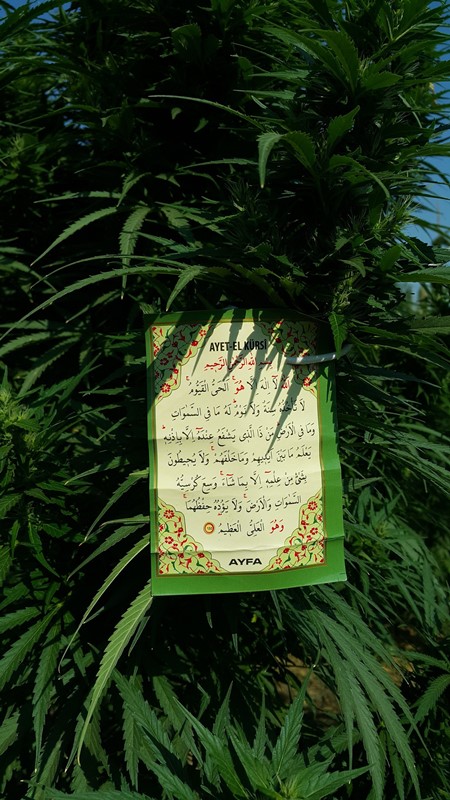 AYET-EL KÜRSİ
بِسْمِ اللهِ الرَّحْمٰنِ الرَّحِيمِ
اَللهُ لَا اِلٰهَ اِلَّا هُوَ اَلْحَيُّ الْقَيُّومُ
لَا تَأْخُذُهُ سِنَةٌ وَلَا نَوْمٌ لَهُ مَا فِي السَّمٰوَاتِ
وَمَا فِي الْاَرْضِ مَنْ ذَا الَّذِي يَشْفَعُ عِنْدَهُ اِلَّا بِاِذْنِهِ
يَعْلَمُ مَا بَيْنَ اَيْدِيهِمْ وَمَا خَلْفَهُمْ وَلَا يُحِيطُونَ
بِشَيْءٍ مِنْ عِلْمِهِ اِلَّا بِمَا شَاءَ وَسِعَ كُرْسِيُّهُ
السَّمٰوَاتِ وَالْاَرْضَ وَلَا يَؤُدُهُ حِفْظُهُمَا
وَهُوَ الْعَلِيُّ الْعَظِيمُ
AYFA